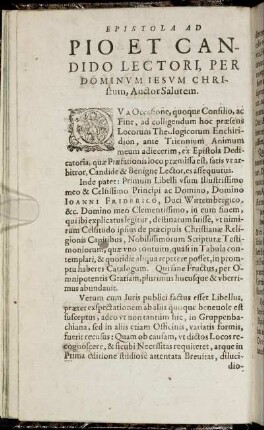 EPISTOLA AD
PIO ET CAN-
DIDO LECTORI, PER
DOMINVM IESVM CHRI-
stum, Auctor Salutem.
QVA Occasione, quoque Consilio, ac
Fine, ad colligendum hoc præsens
Locorum Theologicorum Enchiri-
dion, ante Triennium Animum
meum adiecerim, ex Epistola Dedi-
catoria, quæ Præfationis loco præmissa est, satis vt ar-
bitror, Candide & Benigne Lector, es assequutus.
Inde patet: Primum Libelli vsum Illustrissimo
meo & Celsissimo Principi ac Domino, Domino
IOANNI FRIDERICO, Duci Wirtembergico,
&c. Domino meo Clementissimo, in eum
qui ibi explicatus legitur, destinatum fuisse, vt nimi-
rum Celsitudo ipsius de præcipuis Christianæ Reli-
gionis Capitibus, Nobilissimorum Scripturæ Testi-
moniorum, quæ vno contuitu, quasi in Tabula con-
templari, & quotidie aliqua repetere posset, in prom-
ptu haberet Catalogum. Qui sane Fructus, per Om-
nipotentis Gratiam, plurimus hucusque & vberri-
mus abundauit.
Verum cum Iuris publici factus esset Libellus,
præter exspectationem ab aliis quoque beneuole est
susceptus, adeo vt non tantum hic, in Gruppenba-
chiana, sed in aliis etiam Officinis, variatis formis,
fuerit recusus: Quam ob causam, vt dictos Locos re-
cognoscere, & sicubi Necessitas requireret, atque in
Prima editione studiose attentata Breuitas, dilucí-
dio-